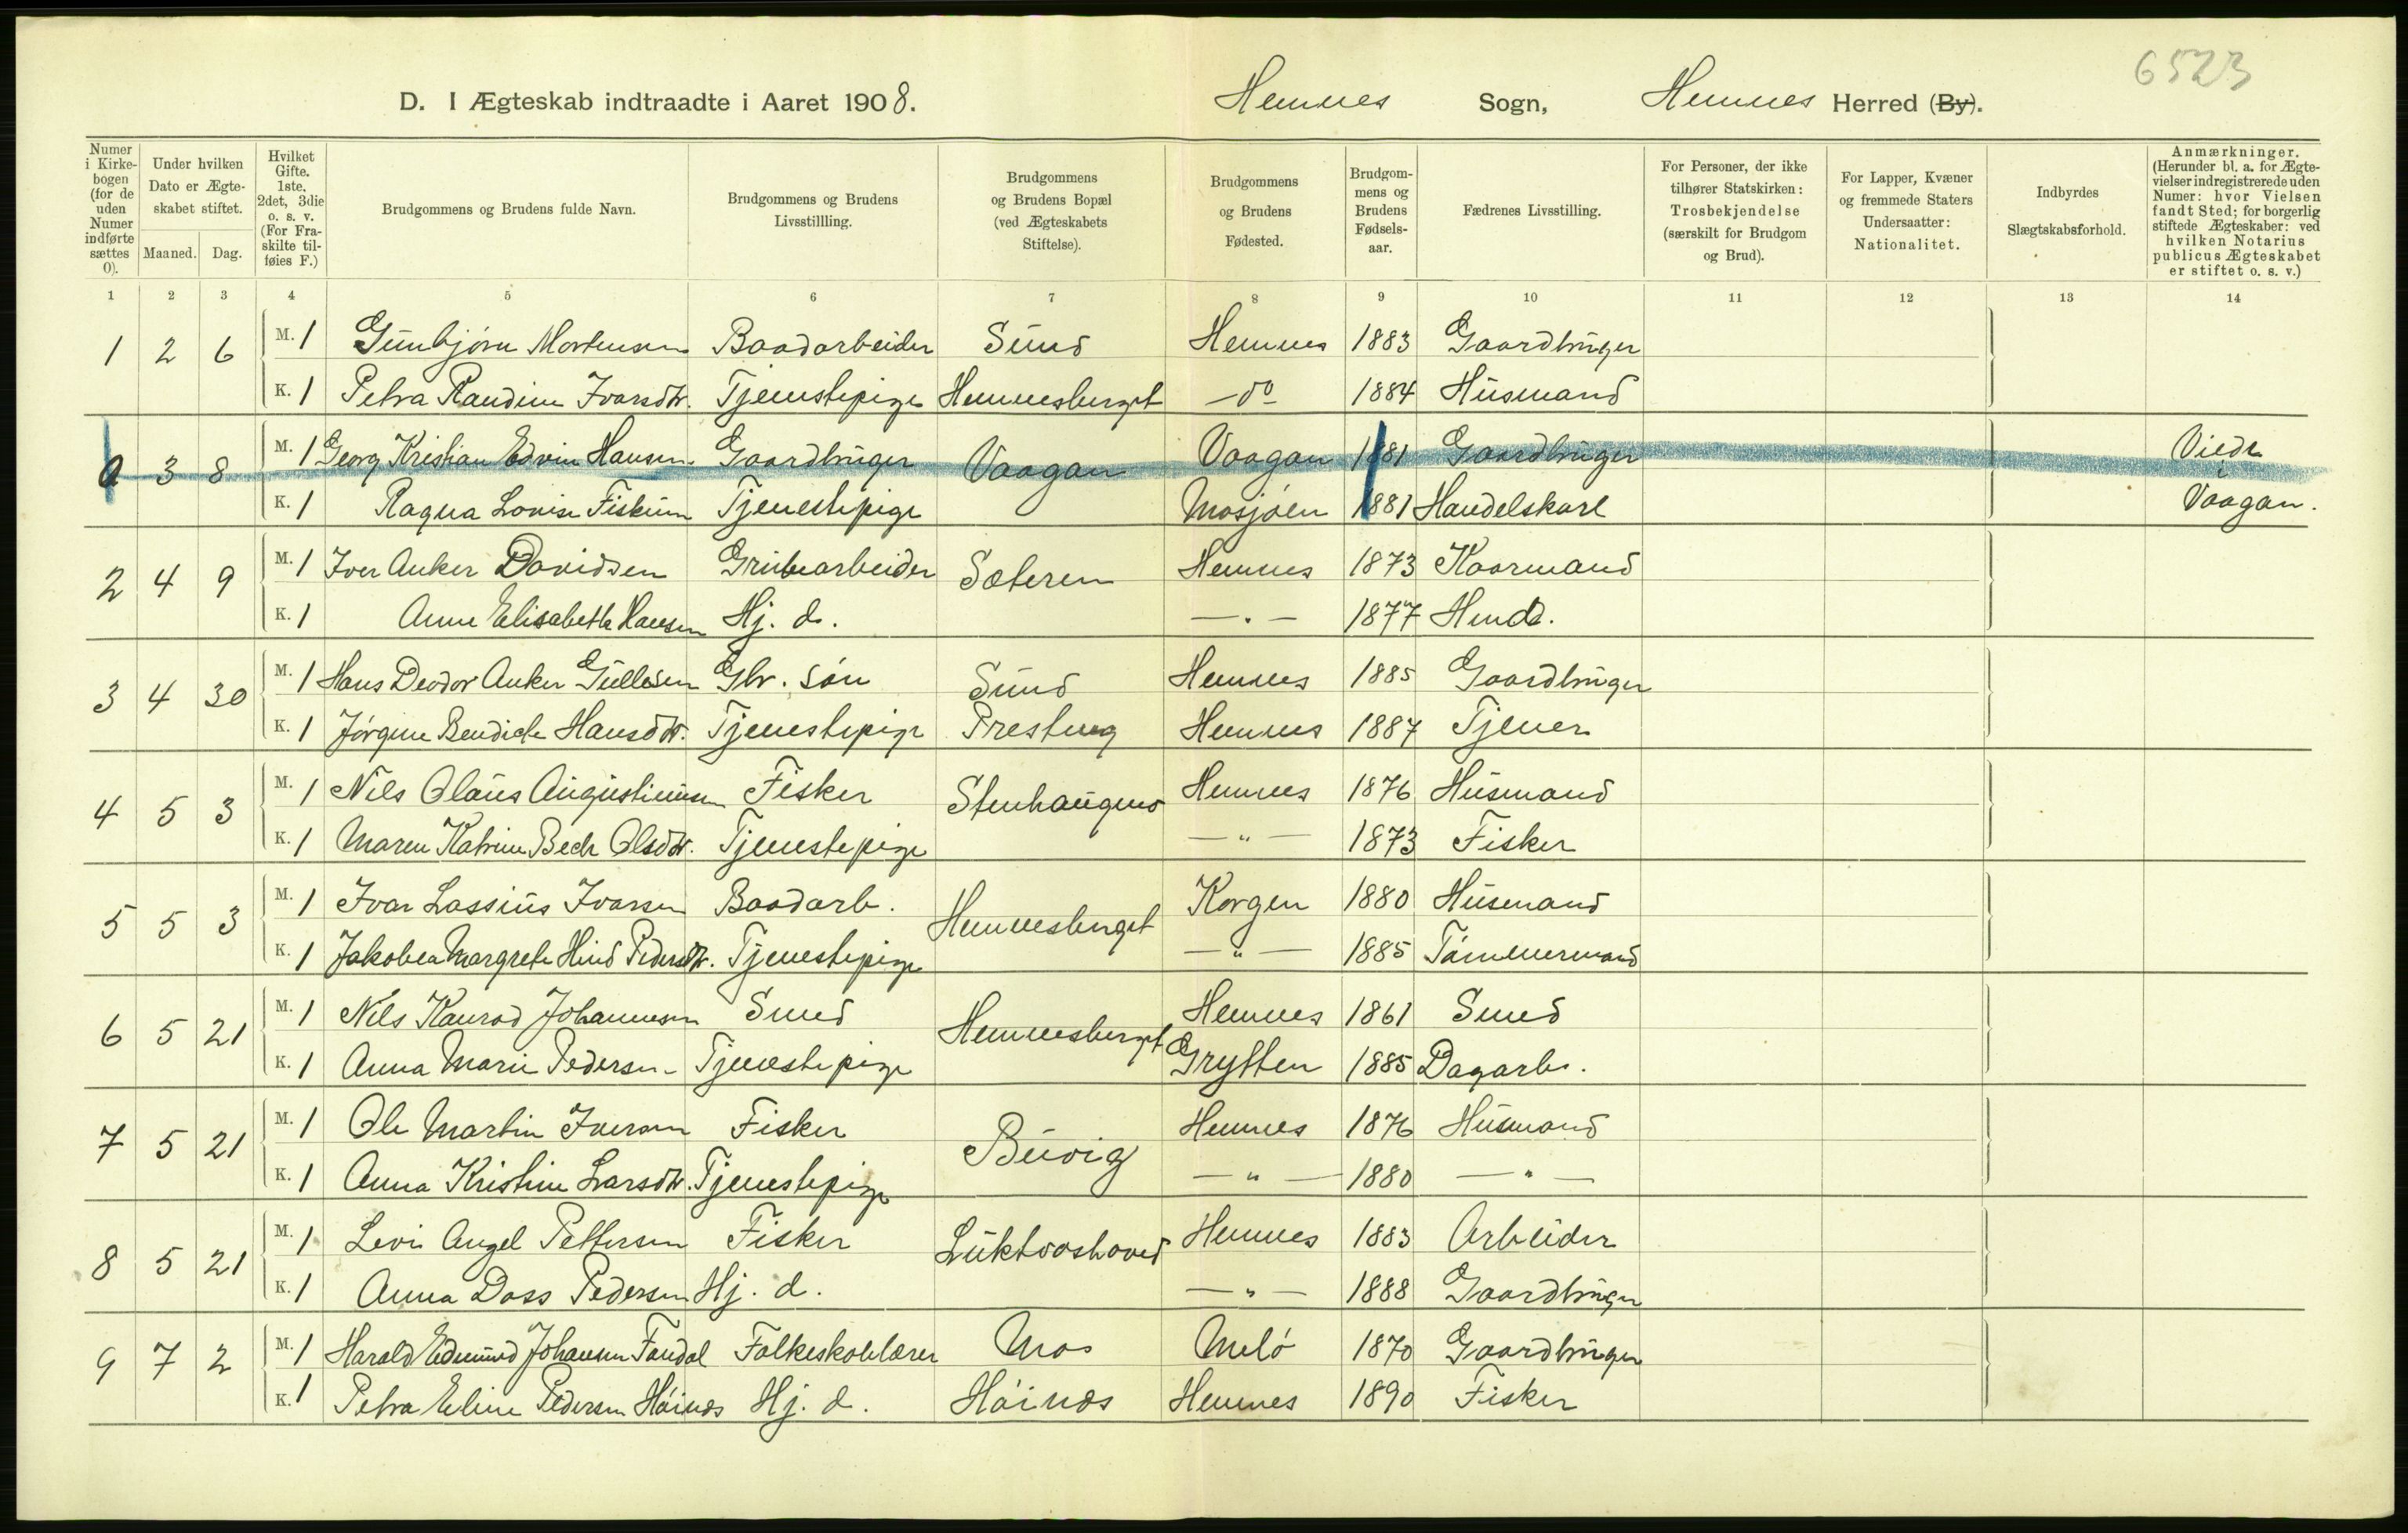 6523
D. I Ægteskab indtraadte i Aaret 1908. Hemnes Sogn, Hemnes Herred (By).
Numer i Kirkebogen (for de uden Numer indførte sættes 0).
Under hvilken Dato er Ægteskabet stiftet.
Maaned. Dag.
Hvilket Gifte. 1ste, 2det, 3die o. s. v. (For Fraskilte tilføies F.)
Brudgommens og Brudens fulde Navn.
Brudgommens og Brudens Livsstillling.
Brudgommens og Brudens Bopæl (ved Ægteskabets Stiftelse).
Brudgommens og Brudens Fødested.
Brudgommens og Brudens Fødselsaar.
Fædrenes Livsstilling.
For Personer, der ikke tilhører Statskirken: Trosbekjendelse (særskilt for Brudgom og Brud).
For Lapper, Kvæner og fremmede Staters Undersaatter: Nationalitet.
Indbyrdes Slægtskabsforhold.
Anmærkninger. (Herunder bl. a. for Ægtevielser indregistrerede uden Numer: hvor Vielsen fandt Sted; for borgerlig stiftede Ægteskaber: ved hvilken Notarius publicus Ægteskabet er stiftet o. s. v.)
1 2 3 4 5 6 7 8 9 10 11 12 13 14
1 2 6 M. 1 Gunbjørn Mortensen Baadarbeider Sund Hemnes 1883 Gaardbruger
K. 1 Petra Raudine Ivarsdtr. Tjenestepige Hemnesberget -do- 1884 Husmand
0 3 8 M. 1 Georg Kristian Edvin Hansen. Gaardbruger Vaagan Vaagan 1881 Gaardbruger Viede i
K. 1 Ragna Lovise Fiskum Tjenestepige Mosjøen 1881 Handelskarl Vaagan.
2 4 9 M. 1 Iver Anker Davidsen Grubearbeider Sæteren Hemnes 1873 Kaarmand
K. 1 Anne Elisabeth Hansen Hj. d. — " — 1877
3 4 30 M. 1 Hans Deodor Anker Gullesen Gbr. søn Sund Hemnes 1885 Gaardbruger
K. 1 Jørgine Bendicte Hansdtr. Tjenestepige Presteng Hemnes 1887 Tjener
4 5 3 M. 1 Nils Olaus Augustinusen Fisker Stenhaugens Hemnes 1876 Husmand
K. 1 Maren Katrine Bech Olsdtr. Tjenestepige — " — 1873 Fisker
5 5 3 M. 1 Ivar Lassius Ivarsen Baadarb. Hemnesberget Korgen 1880 Husmand
K. 1 Jakobea Margrete Hind Pedersdtr. Tjenestepige — " — 1885 Tømmermand
6 5 21 M. 1 Nils Konrad Johannesen Smed Hemnesberget Hemnes 1861 Smed
K. 1 Anna Marie Pedersen Tjenestepige Grytten 1885 Dagarb.
7 5 21 M. 1 Ole Martin Iversen Fisker Buvig Hemnes 1876 Husmand
K. 1 Anna Kristine Larsdtr. Tjenestepige — " — 1880 — " —
8 5 21 M. 1 Levi Angel Pettersen Fisker Luktvashaved Hemnes 1883 Arbeider
K. 1 Anna Dass Pedersen Hj. d. — " — 1888 Gaardbruger
9 7 2 M. 1 Harald Edmund Johansen Fandal Folkeskolelærer Mos Melø 1870 Gaardbruger
K. 1 Petra Eline Pedersen Høinæs Hj. d. Høinæs Hemnes 1890 Fisker